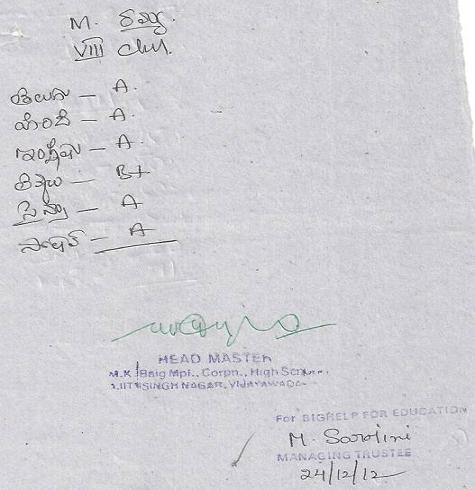 M. రమ్య.
VIII Class.
తెలుగు — A.
హిందీ — A.
ఇంగ్లీషు — A.
లెక్కలు — B+
సైన్సు — A
సోషల్ — A
HEAD MASTER
M.K. Baig Mpl., Corpn., High School,
AJITSINGH NAGAR, VIJAYAWADA
For BIGHELP FOR EDUCATION
M. Sarojini
MANAGING TRUSTEE
24/12/12